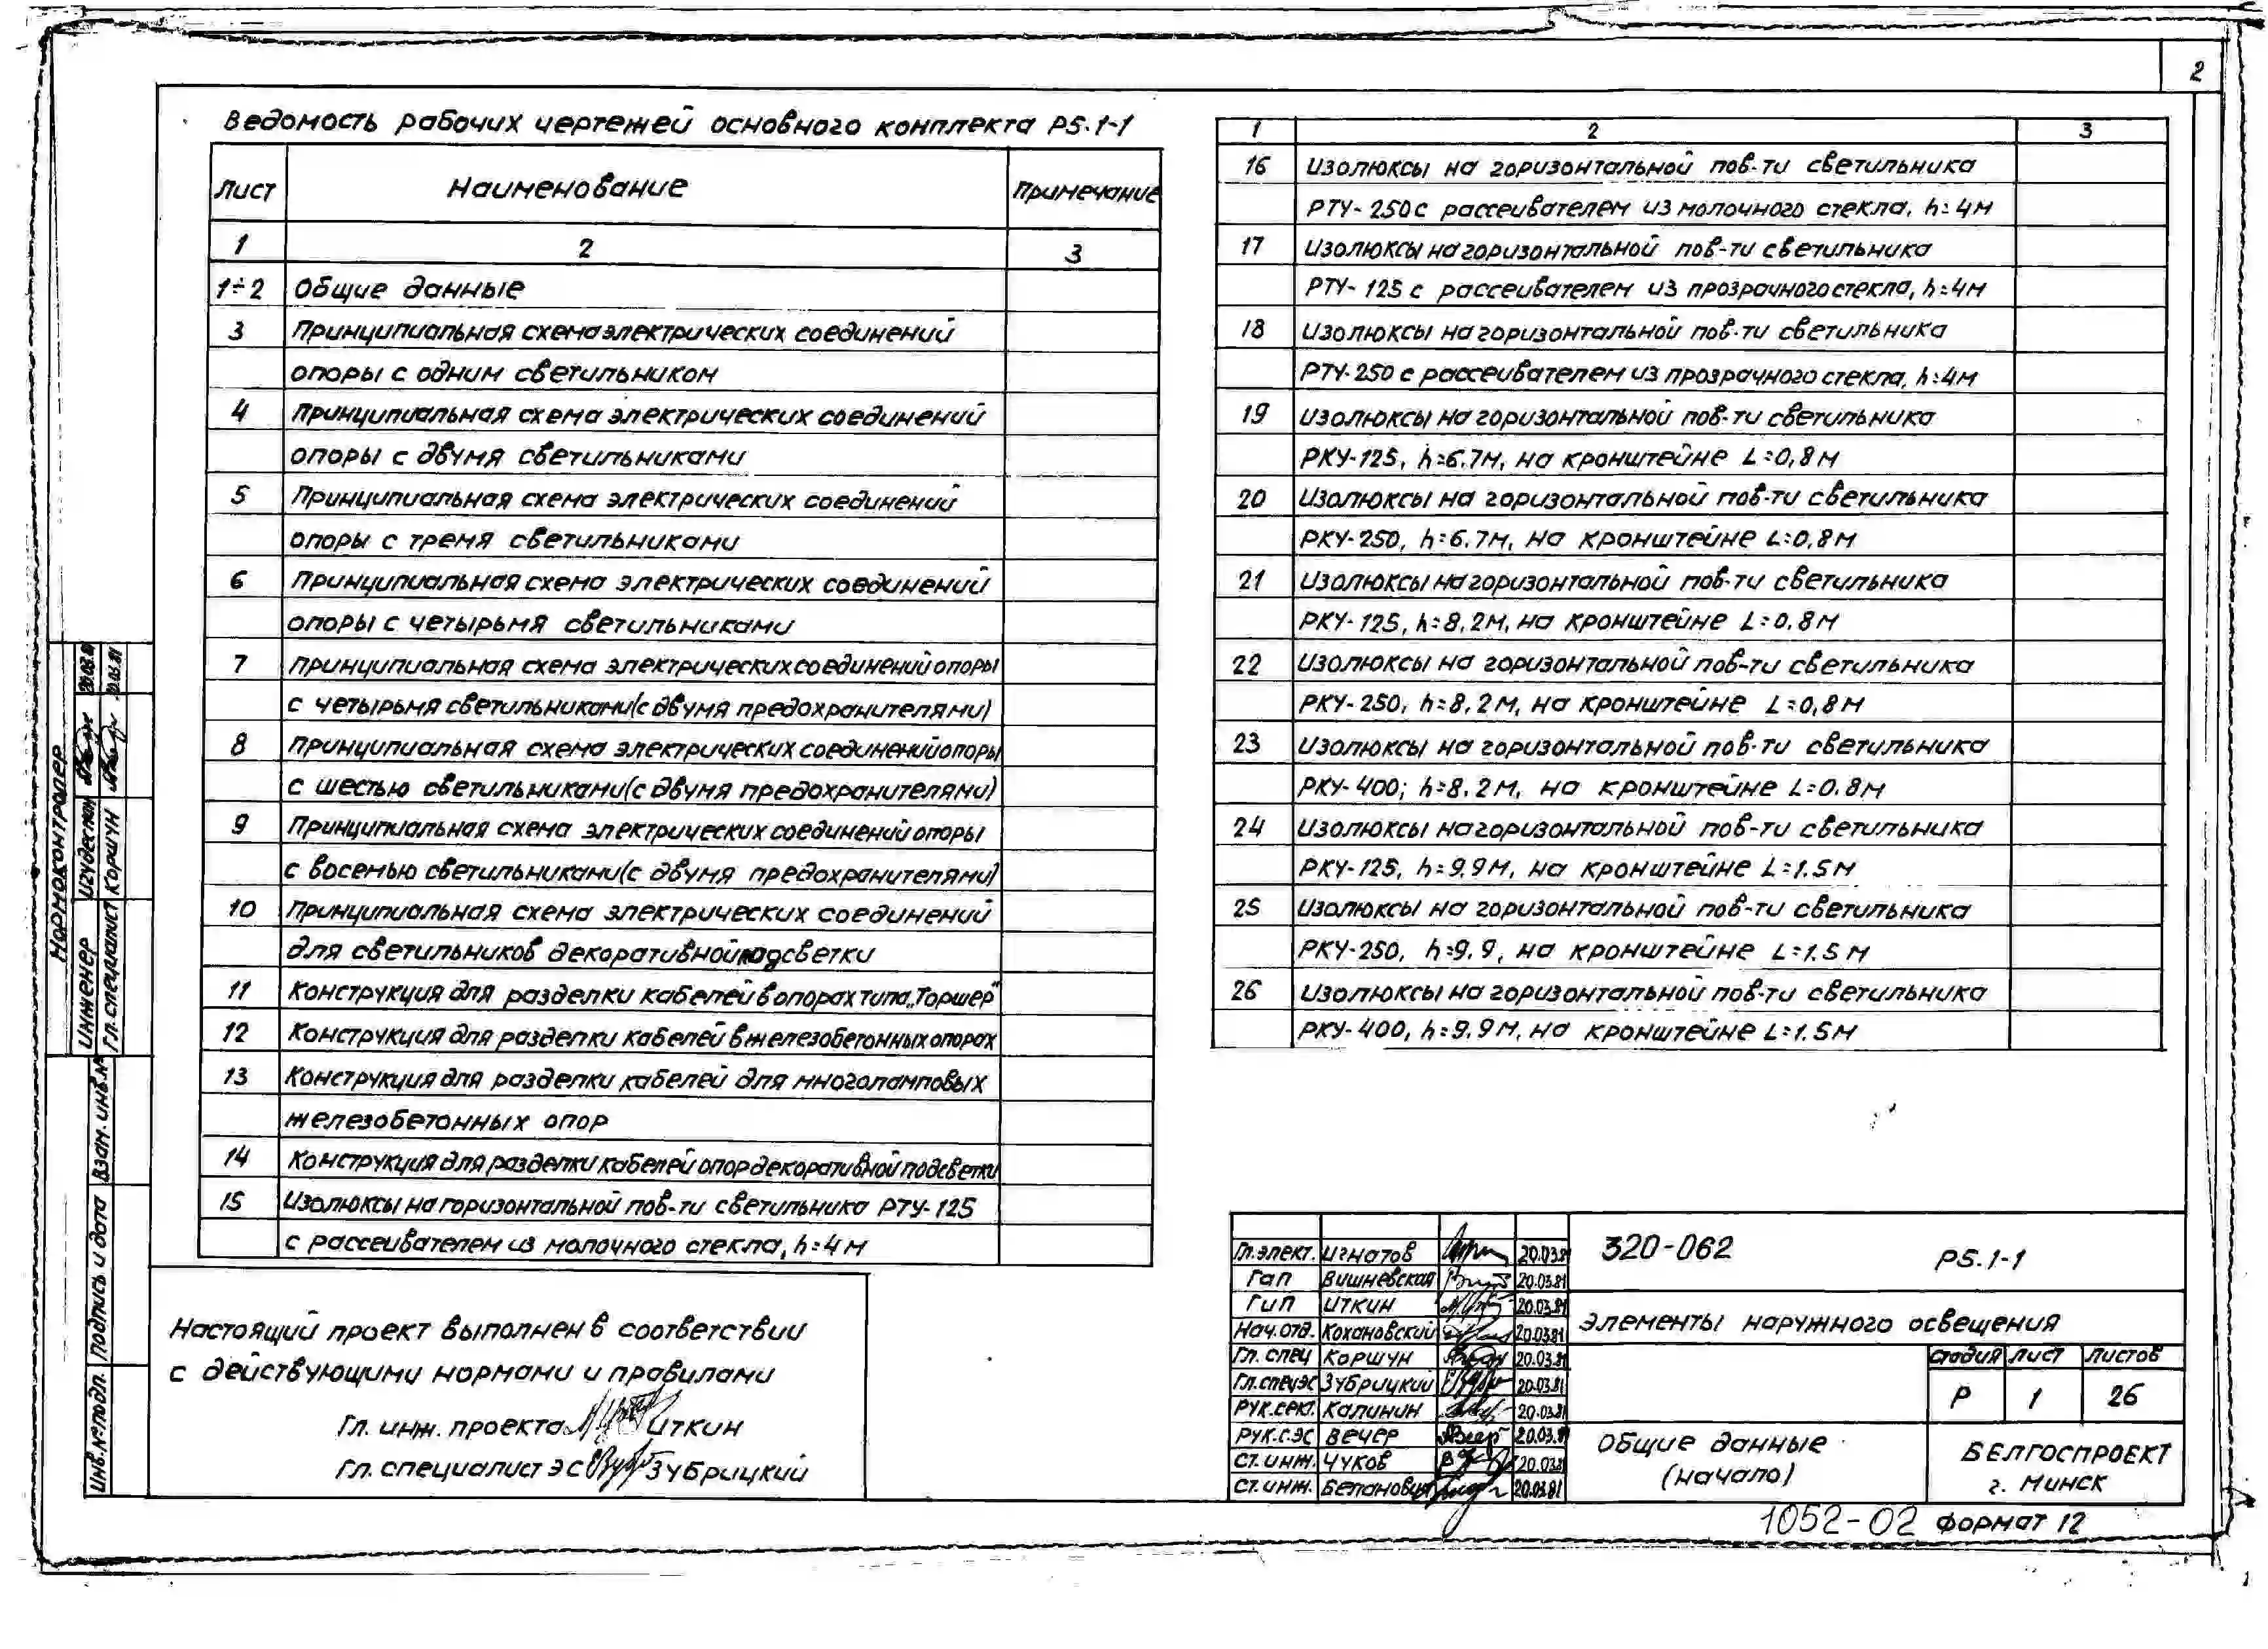 2
Ведомость рабочих чертежей основного комплекта Р5.1-1
Лист Наименование Примечание
1 2 3
1÷2 Общие данные
3 Принципиальная схема электрических соединений
опоры с одним светильником
4 Принципиальная схема электрических соединений
опоры с двумя светильниками
5 Принципиальная схема электрических соединений
опоры с тремя светильниками
6 Принципиальная схема электрических соединений
опоры с четырьмя светильниками
7 Принципиальная схема электрических соединений опоры
с четырьмя светильниками (с двумя предохранителями)
8 Принципиальная схема электрических соединений опоры
с шестью светильниками (с двумя предохранителями)
9 Принципиальная схема электрических соединений опоры
с восемью светильниками (с двумя предохранителями)
10 Принципиальная схема электрических соединений
для светильников декоративной подсветки
11 Конструкция для разделки кабелей в опорах типа „Торшер"
12 Конструкция для разделки кабелей в железобетонных опорах
13 Конструкция для разделки кабелей для многоламповых
железобетонных опор
14 Конструкция для разделки кабелей опор декоративной подсветки
15 Изолюксы на горизонтальной пов-ти светильника РТУ-125
с рассеивателем из молочного стекла, h=4м
1 2 3
16 Изолюксы на горизонтальной пов-ти светильника
РТУ-250 с рассеивателем из молочного стекла, h=4м
17 Изолюксы на горизонтальной пов-ти светильника
РТУ-125 с рассеивателем из прозрачного стекла, h=4м
18 Изолюксы на горизонтальной пов-ти светильника
РТУ-250 с рассеивателем из прозрачного стекла, h=4м
19 Изолюксы на горизонтальной пов-ти светильника
РКУ-125, h=6.7м, на кронштейне L=0,8м
20 Изолюксы на горизонтальной пов-ти светильника
РКУ-250, h=6.7м, на кронштейне L=0,8м
21 Изолюксы на горизонтальной пов-ти светильника
РКУ-125, h=8,2м, на кронштейне L=0.8м
22 Изолюксы на горизонтальной пов-ти светильника
РКУ-250, h=8,2м, на кронштейне L=0,8м
23 Изолюксы на горизонтальной пов-ти светильника
РКУ-400; h=8.2м, на кронштейне L=0.8м
24 Изолюксы на горизонтальной пов-ти светильника
РКУ-125, h=9.9м, на кронштейне L=1.5м
25 Изолюксы на горизонтальной пов-ти светильника
РКУ-250, h=9.9, на кронштейне L=1.5м
26 Изолюксы на горизонтальной пов-ти светильника
РКУ-400, h=9.9м, на кронштейне L=1.5м
Нормоконтролер
Инженер 20.03.81
Гл.специалист Коршун 20.03.81
Взам. инв.№
Подпись и дата
Инв.№ подл.
Настоящий проект выполнен в соответствии
с действующими нормами и правилами
Гл. инж. проекта Иткин
Гл. специалист ЭС Зубрицкий
Гл.элект. Игнатов 20.03.81
Гап Вишневская 20.03.81
Гип Иткин 20.03.81
Нач.отд. Кохановский 20.03.81
Гл. спец Коршун 20.03.81
Гл.спецЭС Зубрицкий 20.03.81
Рук.сект. Калинин 20.03.81
Рук.с.ЭС Вечер 20.03.81
Ст.инж. Чуков 20.03.81
Ст.инж. 20.03.81
320-062 Р5.1-1
Элементы наружного освещения
Стадия Лист Листов
Р 1 26
Общие данные
(начало)
БЕЛГОСПРОЕКТ
г. Минск
1052-02 Формат 12